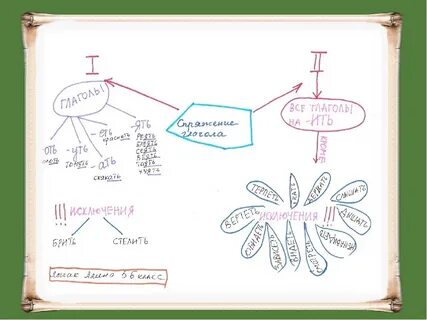 I
II
ГЛАГОЛЫ
Спряжение
глагола
ВСЕ ГЛАГОЛЫ
НА -ИТЬ
КРОМЕ
-ЕТЬ
ЯТЬ
-УТЬ
-АТЬ
ОТЬ
!!! ИСКЛЮЧЕНИЯ
БРИТЬ
СТЕЛИТЬ
ИСКЛЮЧЕНИЯ !!!
ТЕРПЕТЬ
ГНАТЬ
ДЕРЖАТЬ
СЛЫШАТЬ
ДЫШАТЬ
НЕНАВИДЕТЬ
СМОТРЕТЬ
ВИДЕТЬ
ЗАВИСЕТЬ
ОБИДЕТЬ
ВЕРТЕТЬ
Алина 5Б класс